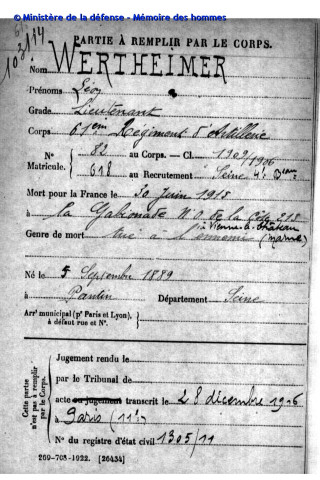 © Ministère de la défense - Mémoire des hommes
PARTIE À REMPLIR PAR LE CORPS.
Nom WERTHEIMER
Prénoms Léon
Grade Lieutenant
Corps 61em Régiment d'Artillerie
N° 82 au Corps. — Cl. 1909/1906
Matricule. 618 au Recrutement Seine 4e Beau
Mort pour la France le 30 Juin 1915
à la N.O. de la Côte 213
à Vienne-le-Château
Genre de mort tué à l'ennemi (Marne)
Né le 5 Septembre 1889
à Pantin Département Seine
Arrt municipal (pr Paris et Lyon),
à défaut rue et N°.
Cette partie n'est pas à remplir par le Corps.
Jugement rendu le
par le Tribunal de
acte ou jugement transcrit le 28 décembre 1916
à Paris (11e)
N° du registre d'état civil 1305/11
269-708-1922. [26434]